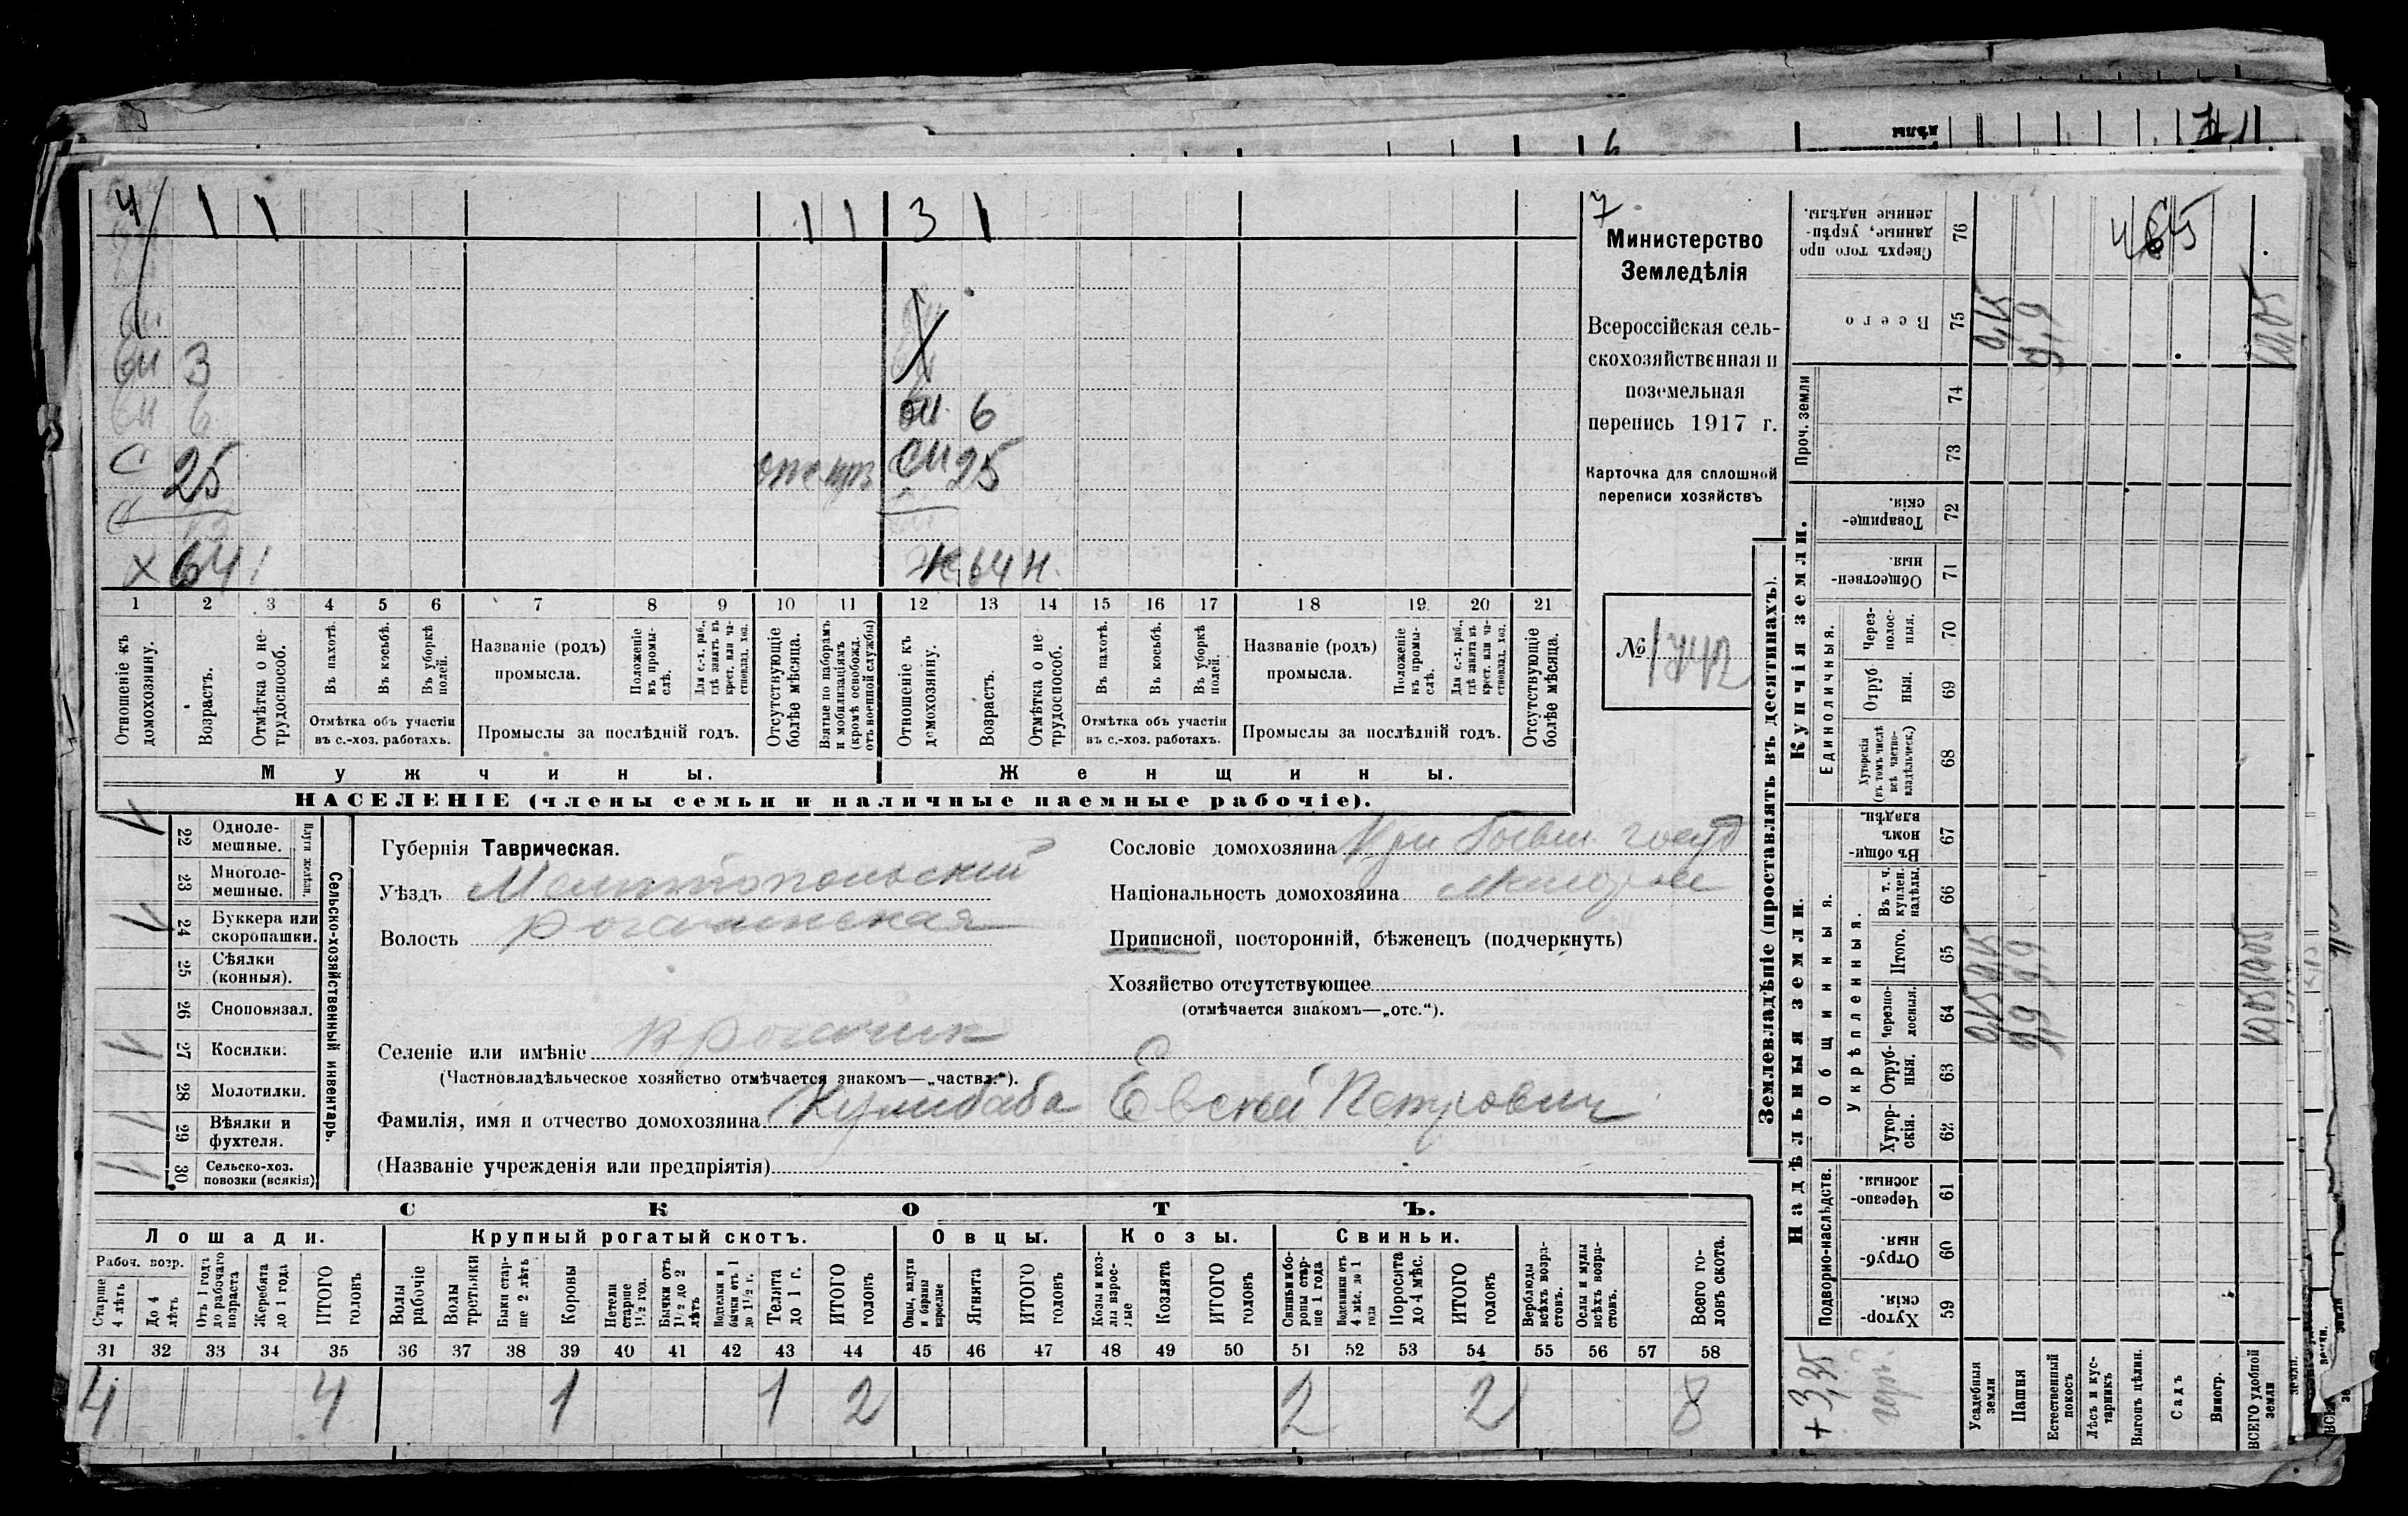 4 1 1 1 1 3 1
вн 3
вн 6 вн. 6
С 25 отс мрт СН 25
Х 64 Ж 64 Н.
1 2 3 4 5 6 7 8 9 10 11 12 13 14 15 16 17 18 19 20 21
Отношеніе къ домохозяину.
Возрастъ.
Отмѣтка о нетрудоспособ.
Въ пахотѣ.
Въ косьбѣ.
Въ уборкѣ полей.
Отмѣтка объ участіи въ с.-хоз. работахъ.
Названіе (родъ) промысла.
Положеніе въ промыслѣ.
Для с.-х. раб., гдѣ занятъ въ крест. или частновлад. хоз.
Промыслы за послѣдній годъ.
Отсутствующіе болѣе мѣсяца.
Взятые по наборамъ и мобилизаціямъ (кромѣ освобожд. отъ военной службы)
Отношеніе къ домохозяину.
Возрастъ.
Отмѣтка о нетрудоспособ.
Въ пахотѣ.
Въ косьбѣ.
Въ уборкѣ полей.
Отмѣтка объ участіи въ с.-хоз. работахъ.
Названіе (родъ) промысла.
Положеніе въ промыслѣ.
Для с.-х. раб., гдѣ занята въ крест. или частновлад. хоз.
Промыслы за послѣдній годъ.
Отсутствующіе болѣе мѣсяца.
Мужчины. Женщины.
НАСЕЛЕНІЕ (члены семьи и наличные наемные рабочіе).
7
Министерство
Земледѣлія
Всероссійская сель-
скохозяйственная и
поземельная
перепись 1917 г.
Карточка для сплошной
переписи хозяйствъ
№
22 Однолемешные.
23 Многолемешные.
Плуги желѣзн.
24 Буккера или скоропашки.
25 Сѣялки (конныя).
26 Сноповязал.
27 Косилки.
28 Молотилки.
29 Вѣялки и фухтеля.
30 Сельско-хоз. повозки (всякія)
Сельско-хозяйственный инвентарь.
Губернія Таврическая.
Уѣздъ Мелитопольский
Волость Рогачинская
Сословіе домохозяина Кр. бывш. госуд
Національность домохозяина малорос
Приписной, посторонній, бѣженецъ (подчеркнуть)
Хозяйство отсутствующее
(отмѣчается знакомъ—„отс.“).
Селеніе или имѣніе В Рогачик
(Частновладѣльческое хозяйство отмѣчается знакомъ—„частвл.“).
Фамилія, имя и отчество домохозяина Кулибаба Евсей Петрович
(Названіе учрежденія или предпріятія)
СКОТЪ.
Лошади. Крупный рогатый скотъ. Овцы. Козы. Свиньи.
Рабоч. возр.
Старше 4 лѣтъ
До 4 лѣтъ
Отъ 1 года до рабочаго возраста
Жеребята до 1 года
ИТОГО головъ
Волы рабочіе
Волы третьяки
Быки старше 2 лѣтъ
Коровы
Нетели старше 1½ год.
Бычки отъ 1½ до 2 лѣтъ
Подтелки и бычки отъ 1 до 1½ г.
Телята до 1 г.
ИТОГО головъ
Овцы, валухи и бараны взрослые
Ягнята
ИТОГО головъ
Козы и козлы взрослые
Козлята
ИТОГО головъ
Свиньи и боровы старше 1 года
Подсвинки отъ 4 мѣс. до 1 года
Поросята до 4 мѣс.
ИТОГО головъ
Верблюды всѣхъ возрастовъ.
Ослы и мулы всѣхъ возрастовъ.
Всего головъ скота.
31 32 33 34 35 36 37 38 39 40 41 42 43 44 45 46 47 48 49 50 51 52 53 54 55 56 57 58
4 4 1 1 2 2 2 8
Землевладѣніе (проставлять въ десятинахъ).
Надѣльныя земли. Купчія земли. Проч. земли
Подворно-наслѣдств.
Общинныя.
Укрѣпленныя.
Единоличныя.
76 Сверхъ того проданные, укрѣпленные надѣлы.
75 Всего
74
73
72 Товарищескія.
71 Общественныя.
70 Черезполосныя.
69 Отрубныя.
68 Хуторскія (въ томъ числѣ всѣ частновладѣльческ.)
67 Въ общинномъ владѣн.
66 Въ т. ч. куплен. надѣлы.
65 Итого.
64 Черезполосныя.
63 Отрубныя.
62 Хуторскія.
61 Черезполосныя.
60 Отрубныя.
59 Хуторскія.
Усадебныя земли 0,15 0,15 0,15
Пашня 9,9 9,9 9,9
Естественный покосъ
Лѣсъ и кустарникъ
Выгонъ цѣлин.
Садъ
Виногр.
ВСЕГО удобной земли 10,05 10,05 10,05
+ 3,35